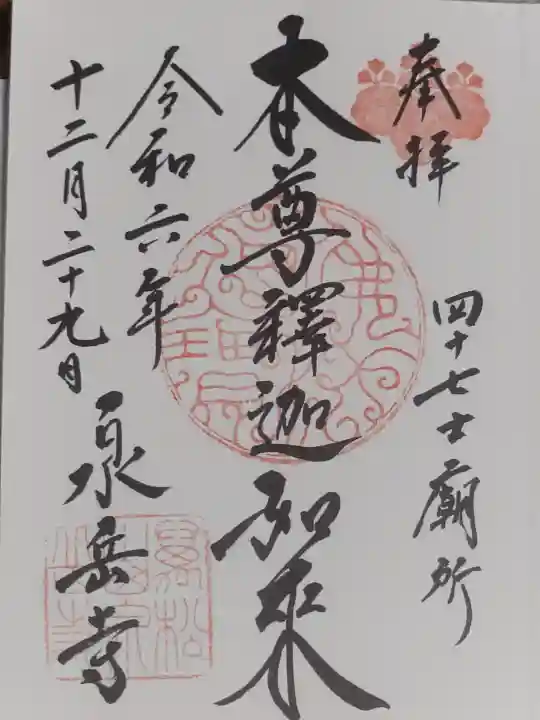 奉拝
四十七士廟所
本尊釋迦如来
令和六年
十二月二十九日
泉岳寺